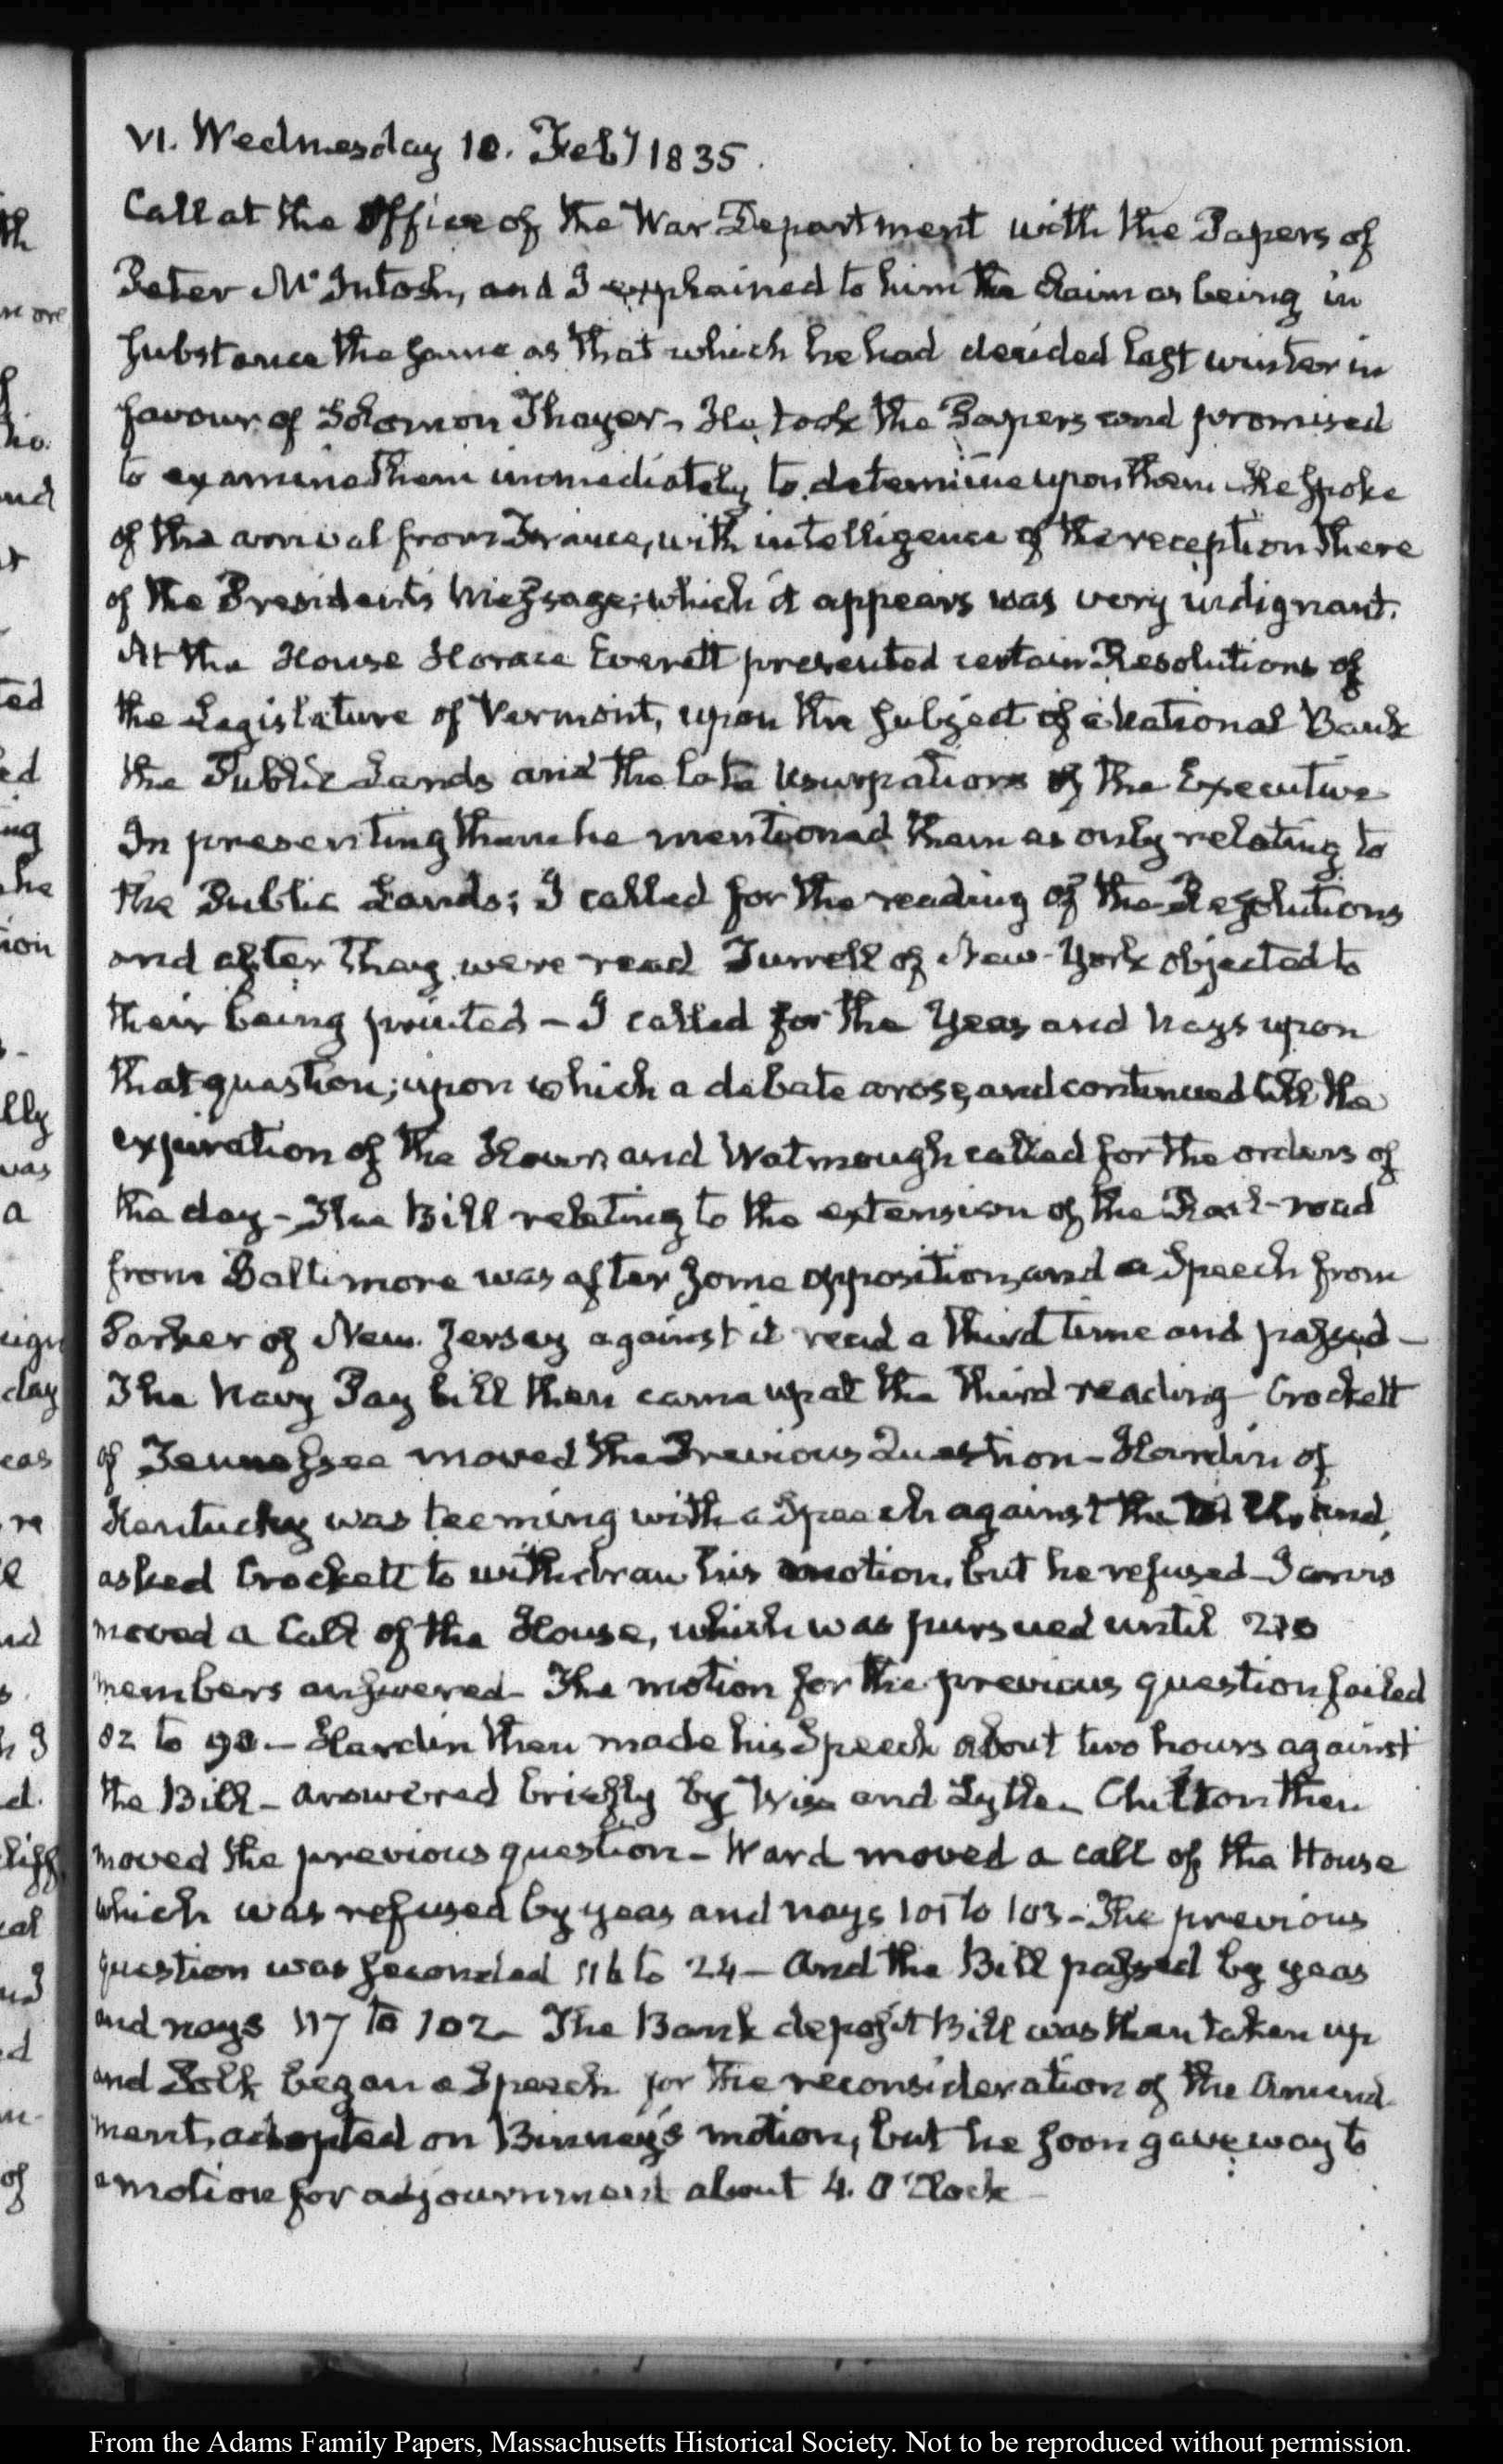 VI. Wednesday 18. Feby 1835.
Call at the Office of the War Department with the Papers of
Peter McIntosh, and I explained to him the claim as being in
substance the same as that which he had decided last winter in
favour of Solomon Thayer. He took the Papers and promised
to examine them immediately to determine upon them - He spoke
of the arrival from France, with intelligence of the reception there
of the President's Message; which it appears was very indignant.
At the House Horace Everett presented certain Resolutions of
the Legislature of Vermont, upon the subject of a National Bank
the Public Lands and the late usurpations of the Executive
In presenting them he mentioned them as only relating to
the Public Lands; I called for the reading of the Resolutions
and after they were read Turrell of New-York objected to
their being printed - I called for the Yeas and Nays upon
that question; upon which a debate arose, and continued till the
expiration of the Hour, and Watmough called for the orders of
the day - The Bill relating to the extension of the Rail-road
from Baltimore was after some opposition, and a Speech from
Parker of New Jersey against it read a third time and passed -
The Navy Pay bill then came up at the third reading - Crockett
of Tennessee moved the Previous Question - Hardin of
Kentucky was teeming with a Speech against the Bill, and
asked Crockett to withdraw his motion, but he refused - Jarvis
moved a Call of the House, which was pursued until 210
members answered - The motion for the previous question failed
82 to 98 - Hardin then made his Speech about two hours against
the Bill - answered briefly by Wise and Lytle - Chilton then
moved the previous question - Ward moved a call of the House
which was refused by yeas and nays 101 to 103 - The previous
question was seconded 116 to 24 - And the Bill passed by yeas
and nays 117 to 102 - The Bank deposit Bill was then taken up
and Polk began a Speech for the reconsideration of the Amend-
ment, adopted on Binney's motion, but he soon gave way to
a motion for adjournment about 4. O'Clock -
From the Adams Family Papers, Massachusetts Historical Society. Not to be reproduced without permission.